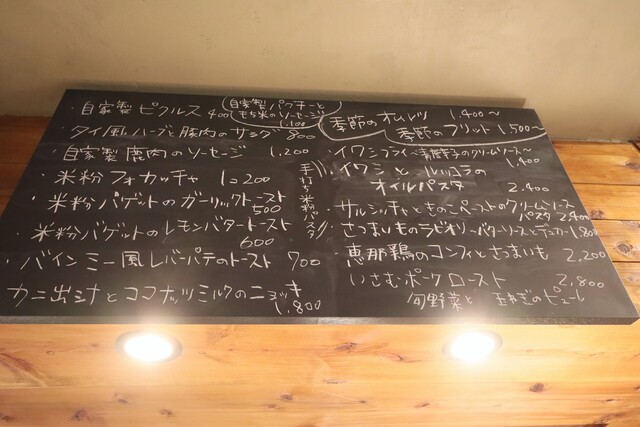 ・自家製 ピクルス 400
自家製 パクチーと
もち米のソーセージ
1.100
・タイ風ハーブと豚肉のサラダ 800
自家製 鹿肉のソーセージ 1.200
・米粉フォカッチャ 1コ200
・米粉バゲットのガーリックトースト
500
・米粉バゲットのレモンバタートースト
600
・バインミー風レバーパテのトースト 700
カニ出シナとココナッツミルクのニョッキ
1.800
手打ち米粉パスタ
季節のオムレツ 1.400〜
季節のフリット 1.500〜
・イワシフライ〜青唐辛子のクリームソース〜
1.400
・イワシとルッコラの
オイルパスタ 2.400
・サルシッチャときのこペーストのクリームソース
パスタ 2.400
・さつまいものラビオリ〜バターソースとデュカ〜1.800
・恵那鶏のコンフィとさつまいも 2.200
・いさむポークロースト 2.800
旬野菜と 玉ねぎのピューレ